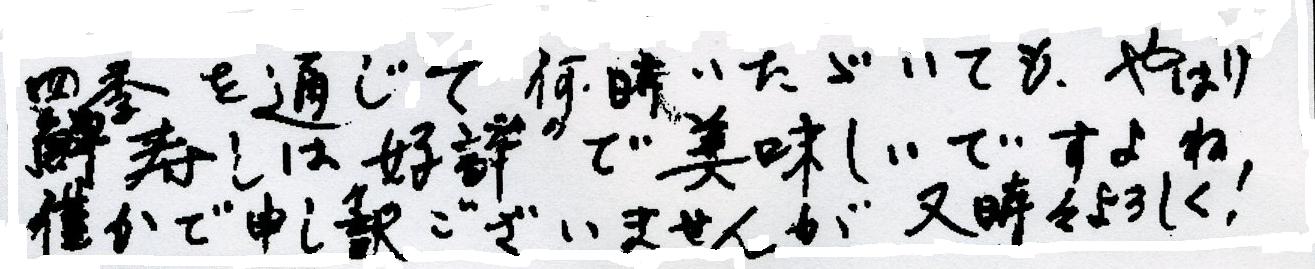 四季を通じて何時いただいても、やはり
鯡寿しは好評〃で美味しいですよね、
僅かで申し訳ございませんが又時々よろしく!